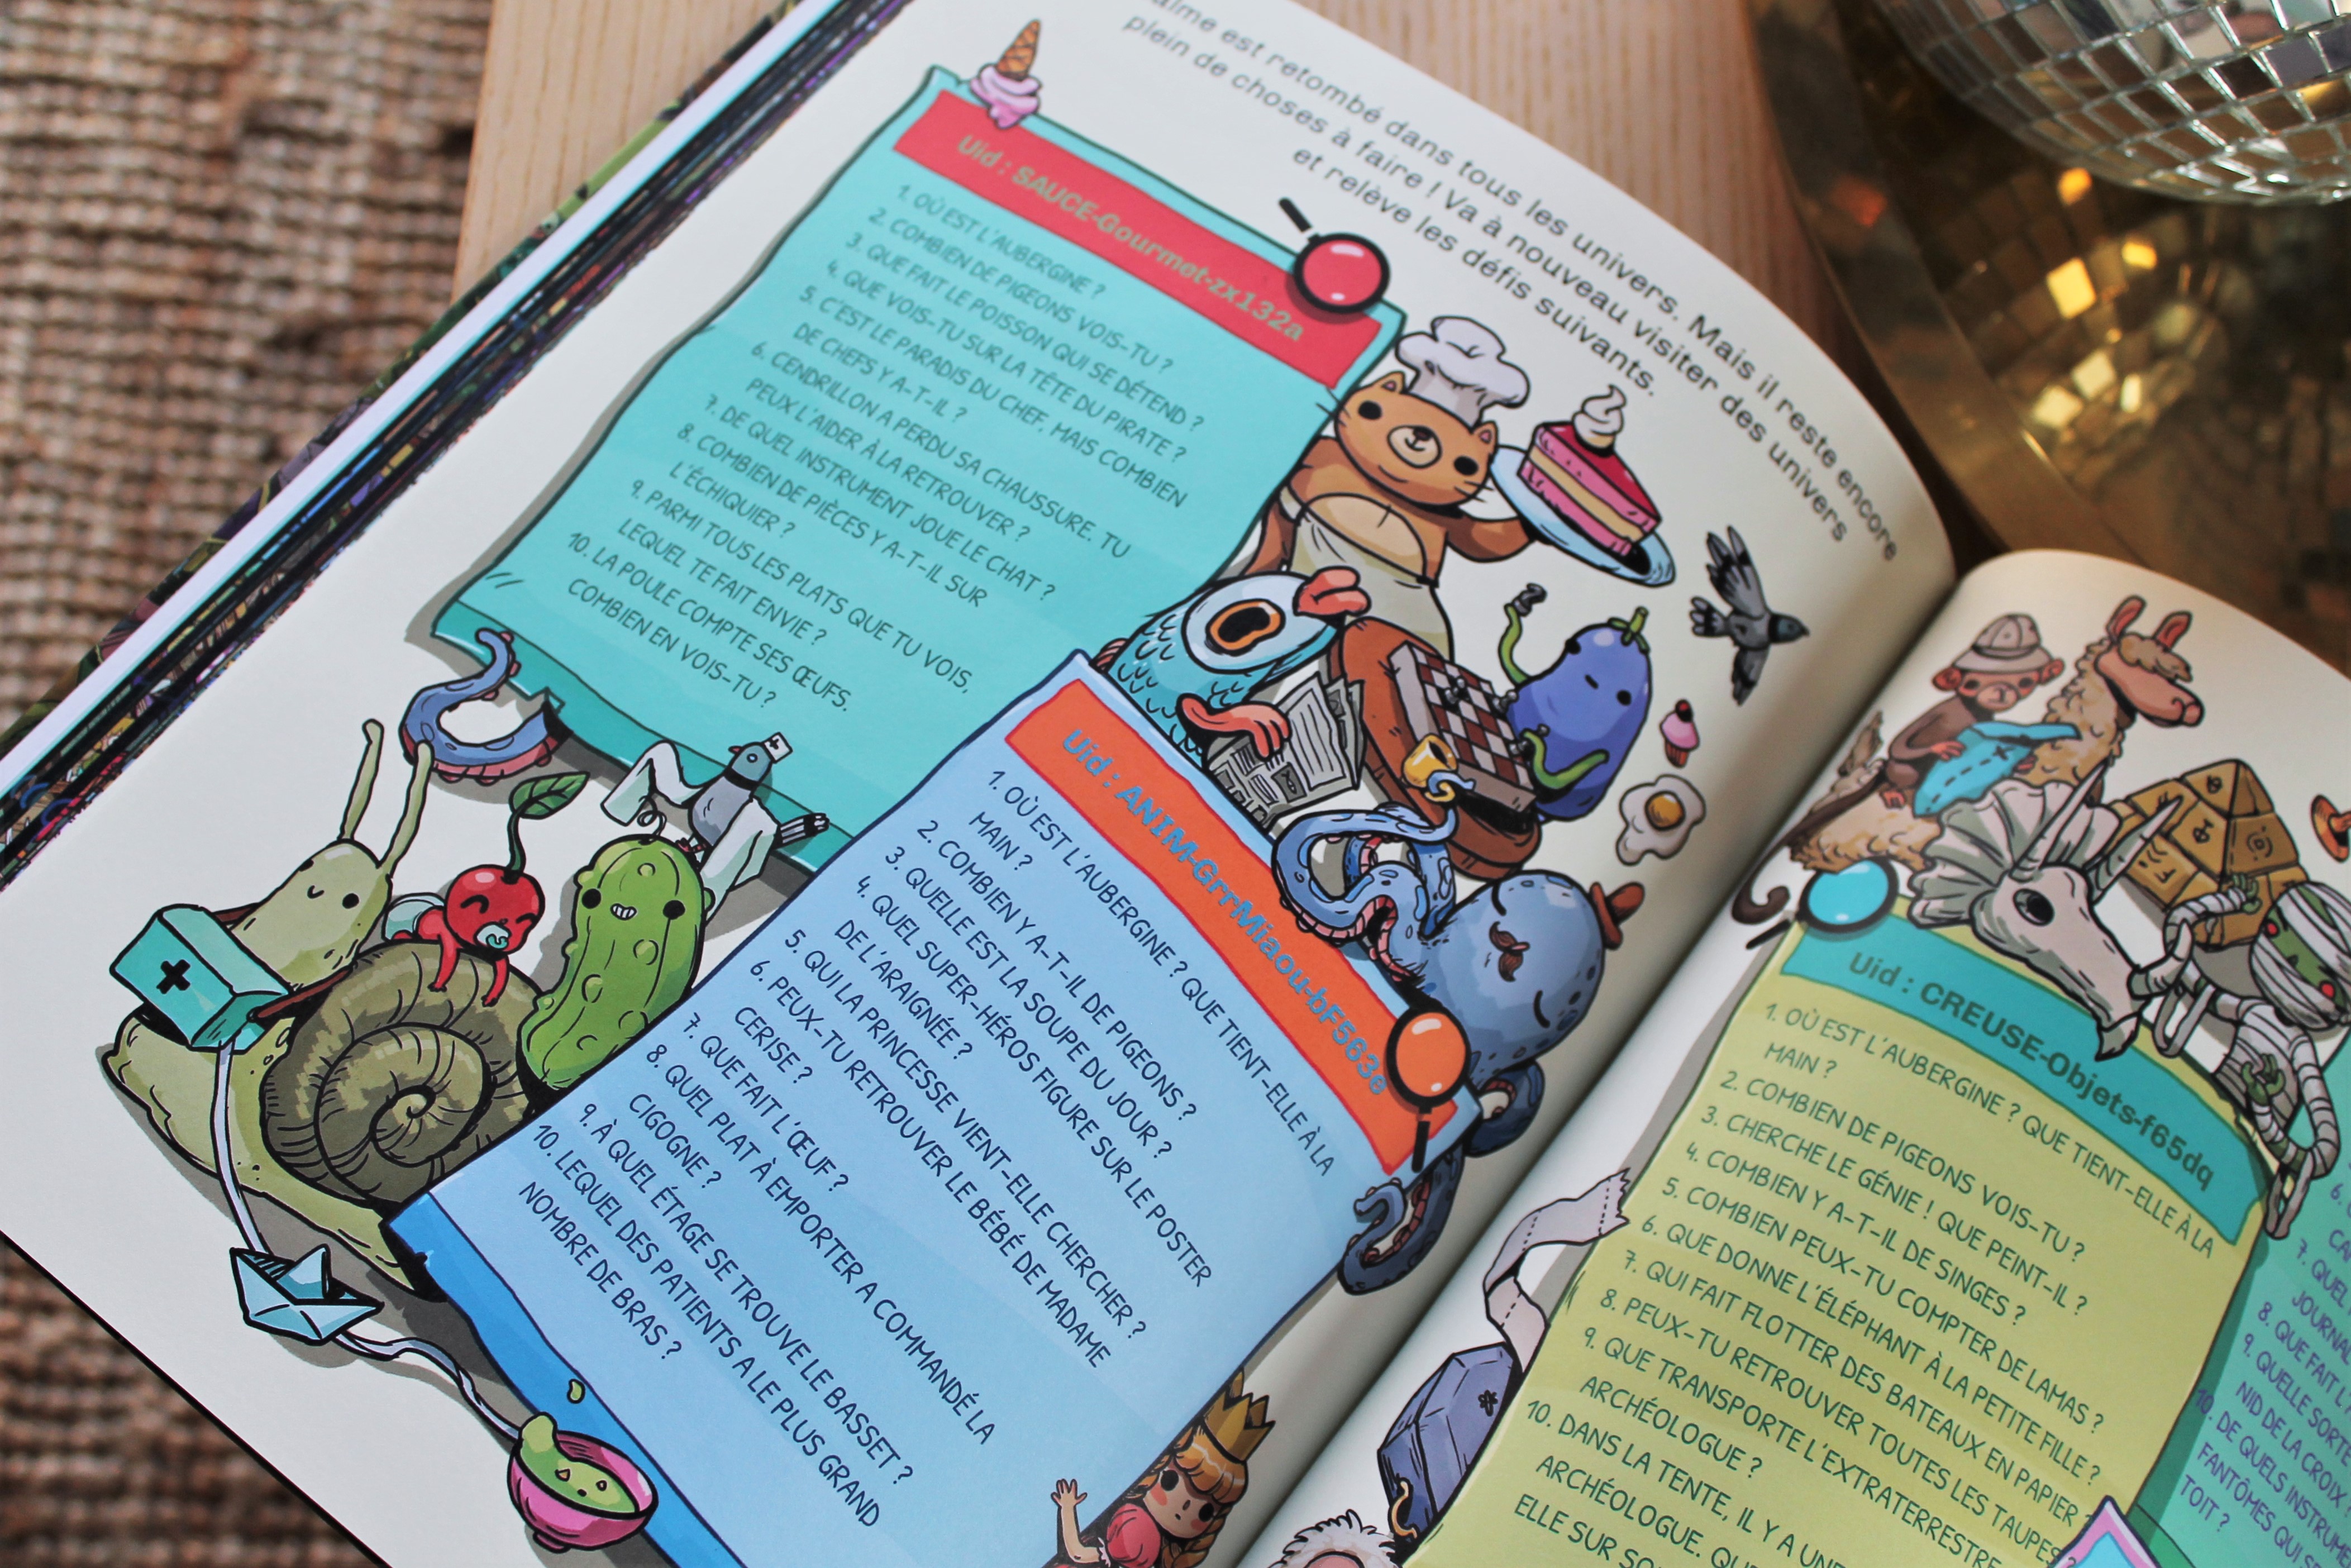 est retombé dans tous les univers. Mais il reste encore
plein de choses à faire ! Va à nouveau visiter des univers
et relève les défis suivants.
Uid : SAUCE-Gourmet-zx132a
1. OÙ EST L'AUBERGINE ?
2. COMBIEN DE PIGEONS VOIS-TU ?
3. QUE FAIT LE POISSON QUI SE DÉTEND ?
4. QUE VOIS-TU SUR LA TÊTE DU PIRATE ?
5. C'EST LE PARADIS DU CHEF, MAIS COMBIEN
DE CHEFS Y A-T-IL ?
6. CENDRILLON A PERDU SA CHAUSSURE. TU
PEUX L'AIDER À LA RETROUVER ?
7. DE QUEL INSTRUMENT JOUE LE CHAT ?
8. COMBIEN DE PIÈCES Y A-T-IL SUR
L'ÉCHIQUIER ?
9. PARMI TOUS LES PLATS QUE TU VOIS,
LEQUEL TE FAIT ENVIE ?
10. LA POULE COMPTE SES ŒUFS.
COMBIEN EN VOIS-TU ?
Uid : ANIM-GrrMiaou-bF563e
1. OÙ EST L'AUBERGINE ? QUE TIENT-ELLE À LA
MAIN ?
2. COMBIEN Y A-T-IL DE PIGEONS ?
3. QUELLE EST LA SOUPE DU JOUR ?
4. QUEL SUPER-HÉROS FIGURE SUR LE POSTER
DE L'ARAIGNÉE ?
5. QUI LA PRINCESSE VIENT-ELLE CHERCHER ?
6. PEUX-TU RETROUVER LE BÉBÉ DE MADAME
CERISE ?
7. QUE FAIT L'ŒUF ?
8. QUEL PLAT À EMPORTER A COMMANDÉ LA
CIGOGNE ?
9. À QUEL ÉTAGE SE TROUVE LE BASSET ?
10. LEQUEL DES PATIENTS A LE PLUS GRAND
NOMBRE DE BRAS ?
Uid : CREUSE-Objets-f65dq
1. OÙ EST L'AUBERGINE ? QUE TIENT-ELLE À LA
MAIN ?
2. COMBIEN DE PIGEONS VOIS-TU ?
3. CHERCHE LE GÉNIE ! QUE PEINT-IL ?
4. COMBIEN Y A-T-IL DE SINGES ?
5. COMBIEN PEUX-TU COMPTER DE LAMAS ?
6. QUE DONNE L'ÉLÉPHANT À LA PETITE FILLE ?
7. QUI FAIT FLOTTER DES BATEAUX EN PAPIER ?
8. PEUX-TU RETROUVER TOUTES LES TAUPES ?
9. QUE TRANSPORTE L'EXTRATERRESTRE
ARCHÉOLOGUE ?
10. DANS LA TENTE, IL Y A UNE
ARCHÉOLOGUE.
ELLE SUR
6.
7.
8. QUE FAIT
9. QUELLE
NID DE LA CROIX
10. DE QUELS
FANTÔMES QUI
TOIT ?